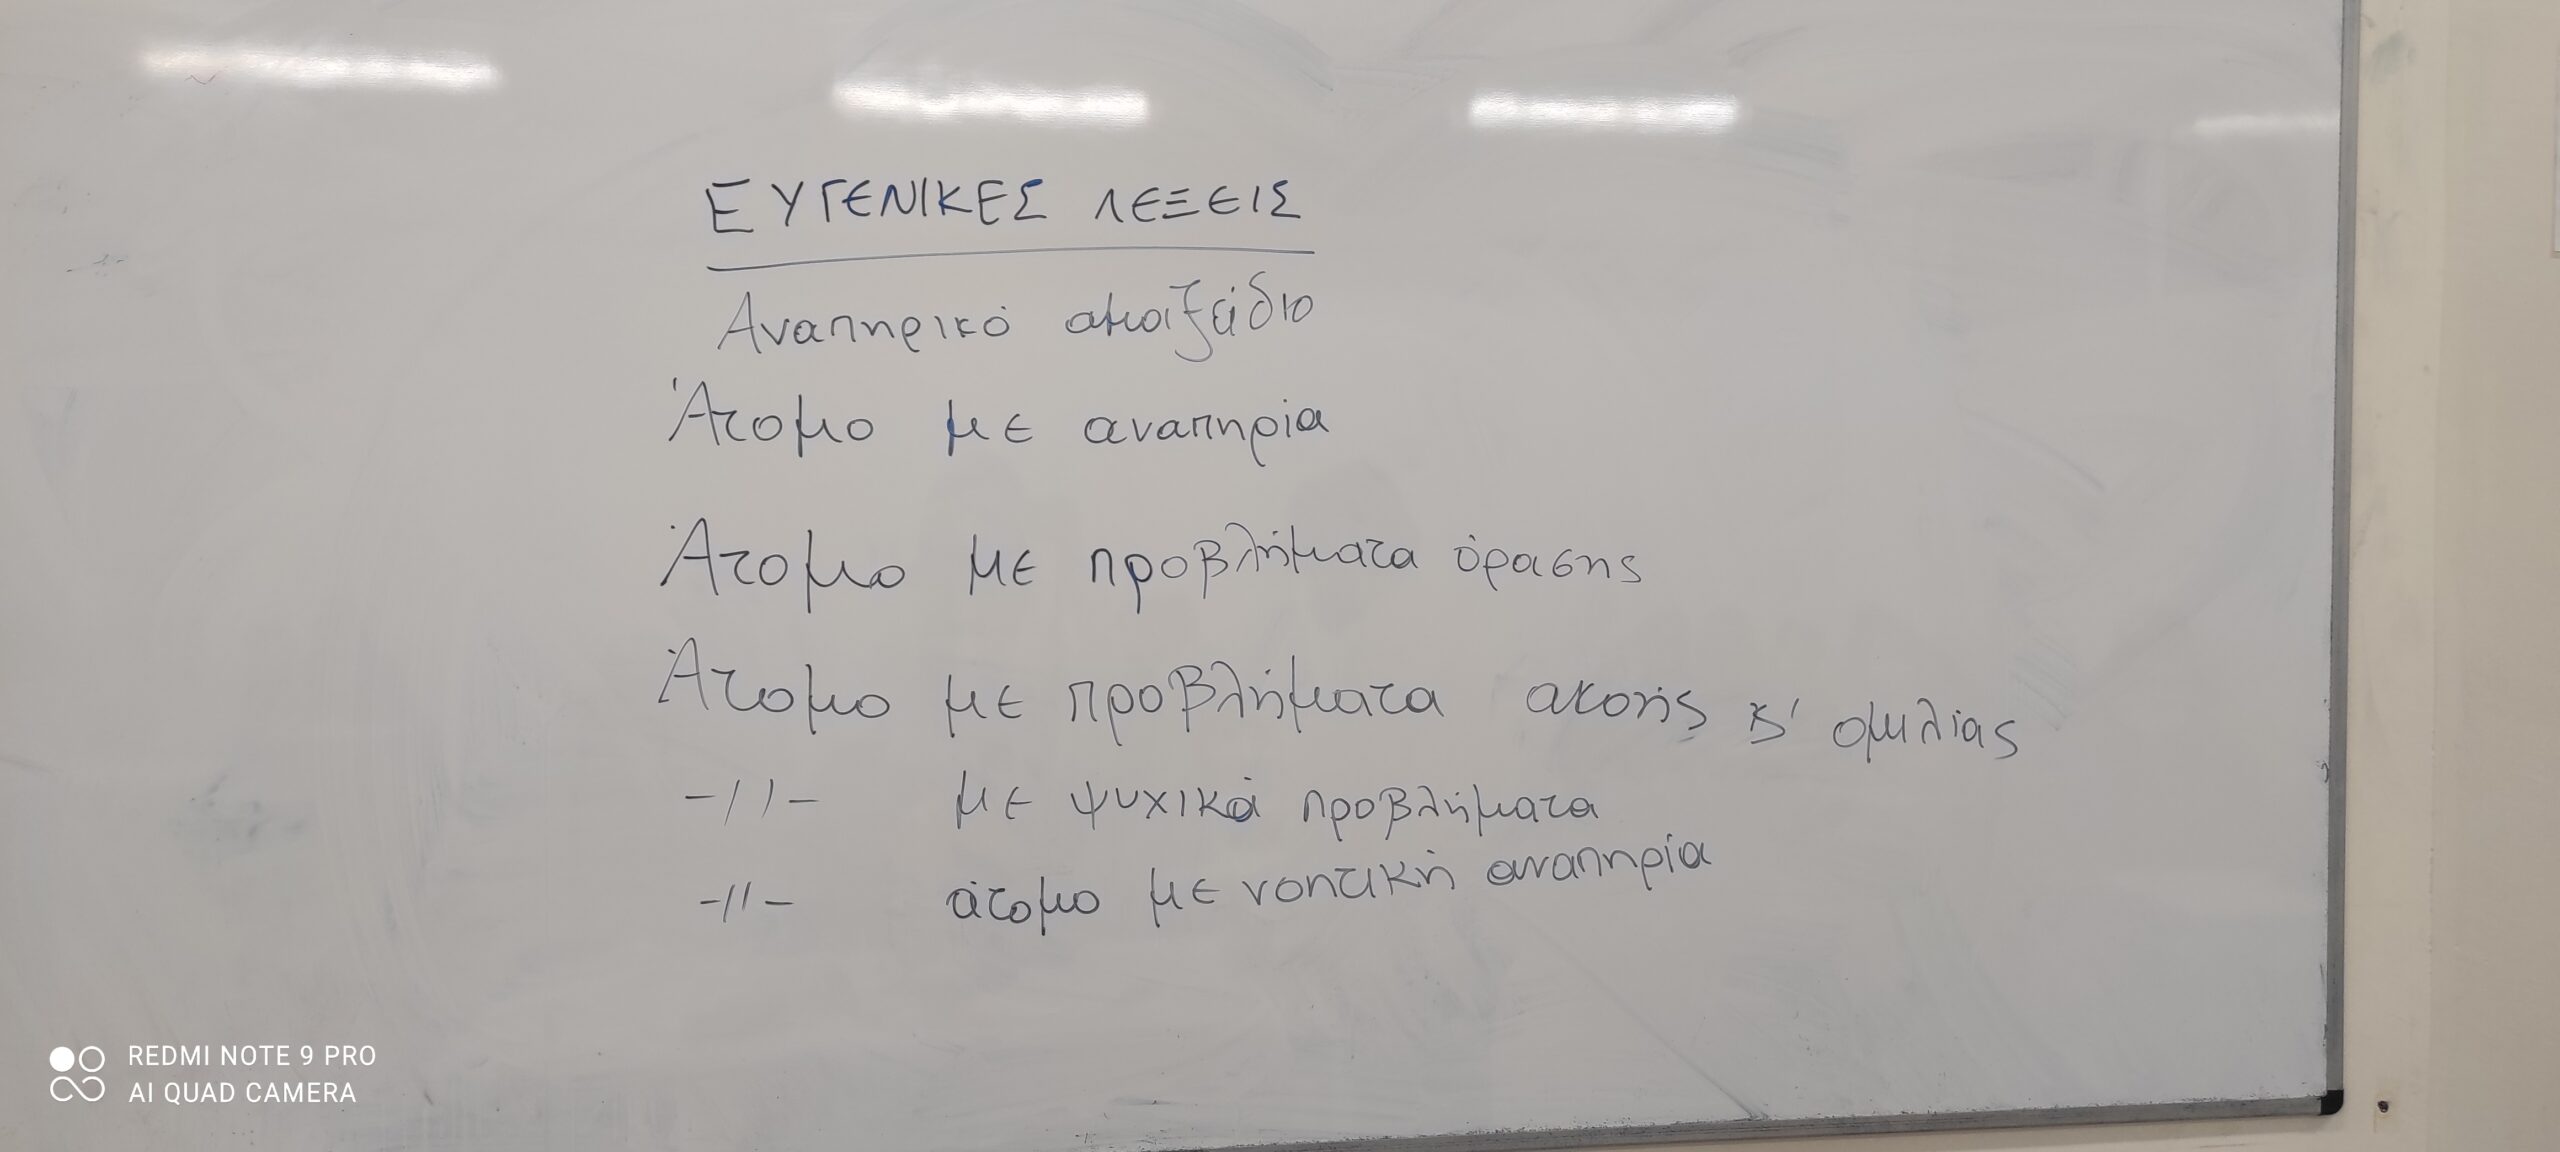 ΕΥΓΕΝΙΚΕΣ ΛΕΞΕΙΣ
Αναπηρικό αμαξίδιο
Άτομο με αναπηρία
Άτομο με προβλήματα όρασης
Άτομο με προβλήματα ακοής κ' ομιλίας
-//- με ψυχικά προβλήματα
-//- άτομο με νοητική αναπηρία
REDMI NOTE 9 PRO
AI QUAD CAMERA